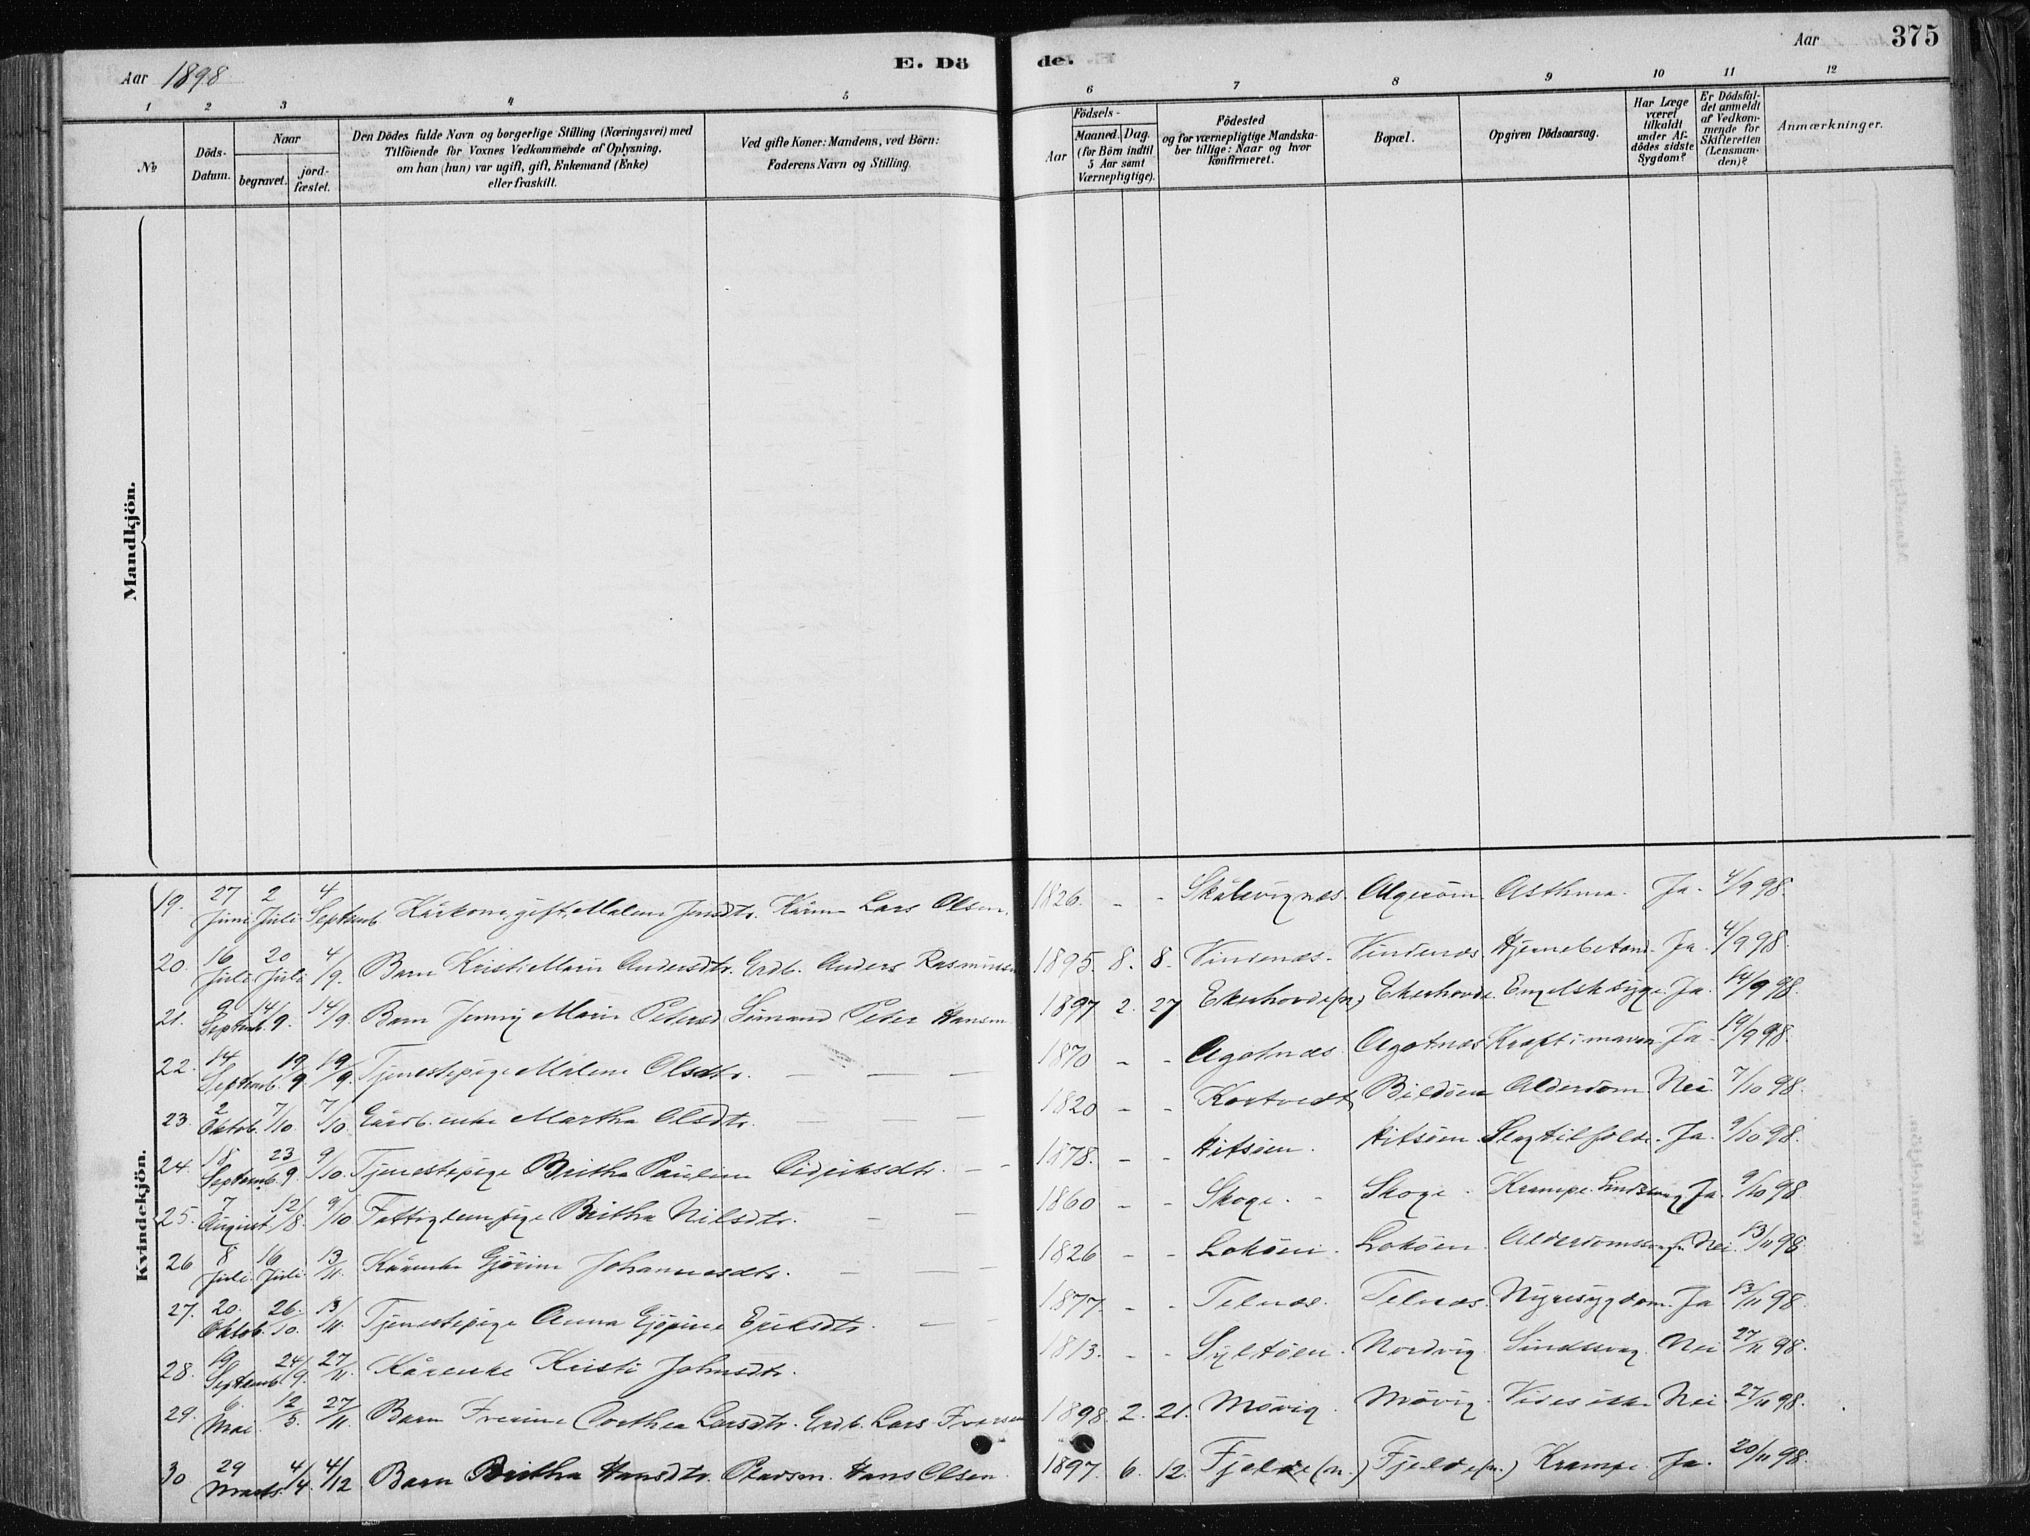 Aar 1898
E. Dö
de.
Aar
375
1 2 3 4 5 6 7 8 9 10 11 12
No
Döds-Datum.
Naar
begravet.
jord-fæstet.
Den Dödes fulde Navn og borgerlige Stilling (Næringsvei) med
Tilföiende for Voxnes Vedkommende af Oplysning,
om han (hun) var ugift, gift, Enkemand (Enke)
eller fraskilt.
Ved gifte Koner: Mandens, ved Börn:
Faderens Navn og Stilling.
Födsels-
Aar
Maaned. Dag.
(for Börn indtil
5 Aar samt
Værnepligtige).
Födested
og for værnepligtige Mandska-
ber tillige: Naar og hvor
konfirmeret.
Bopæl.
Opgiven Dödsaarsag.
Har Læge
været
tilkaldt
under Af-
dödes sidste
Sygdom?
Er Dödsfal-
det anmeldt
af Vedkom-
mende for
Skifteretten
(Lensman-
den)?
Anmærkninger.
Mandkjön.
Kvindekjön.
19. 27 Juni 2 Juli 4 Septemb Kårkone, gift, Malene Jensdtr. Kårm Lars Olsen. 1826. - - Skålevignes. Algeröen Asthma. Ja. 4/9 98.
20. 16 Juli 20 Juli 4/9. Barn Kristi Marie Andersdtr. Grdb. Anders Rasmussen 1895. 8. 8. Vindenæs. Vindenæs Hjernebetænd. Ja. 4/9 98.
21. 9 Septemb. 14/9. 14/9. Barn Jenny Marie Petersd. Sömand Peter Hansen 1897. 2. 27 Ekerhovde (n.) Ekerhovde. Engelsk syge Ja. 14/9 98.
22. 14 Septemb. 19/9. 19/9. Tjenestepige Malene Olsdtr. — — — 1870 - - Agotnæs Agotnæs Kræft i maven Ja. 19/9 98.
23. 2 Oktob. 7/10. 7/10. Gårdb. enke Martha Olsdtr. — — 1820 - - Kortvedt Bildöen Alderdom Nei 7/10 98.
24. 18 Septemb. 23/9. 9/10. Tjenestepige Britha Pauline Didriksdtr. — - 1878. - - Hitsöen. Hitsöen Slagtilfælde. Ja. 9/10 98.
25. 7 August 12/8. 9/10 Fattiglempige Britha Nilsdtr. — — 1860 - - Skoge. - Skoge. Krampe. Sindssvag Ja. 9/10 98.
26 8 Juli. 16 Juli. 13/11. Kårenke Gjörine Johannesdtr. — — — 1826 - - Loköen. Loköen Nei. 13/11 98
27. 20. Oktob. 26. 10. 13/11. Tjenestepige Anna Gjörine Eriksdtr. — - 1877. - - Telnæs. Telnæs. Nyresygdom. Ja 13/11 98.
28. 19 Septemb. 24/9. 27/11. Kårenke Kristi Johnsdtr. 1813. - - Syltöen. Nordvig Sindssvag Nei 27/11 98.
29. 6. Mai. 12/5. 27/11. Barn Iverine Dorthea Larsdtr. Grdb. Lars Iversen 1898. 2. 21. Mövig. Mövig. Vides ikke Nei. 27/11 98.
30 29 Marts. 4/4. 4/12 Barn Britha Hansdtr. Pladsm. Hans Olsen. 1897. 6. 12. Fjelde (n.) Fjelde (n.) Krampe. Ja. 20/11 98.